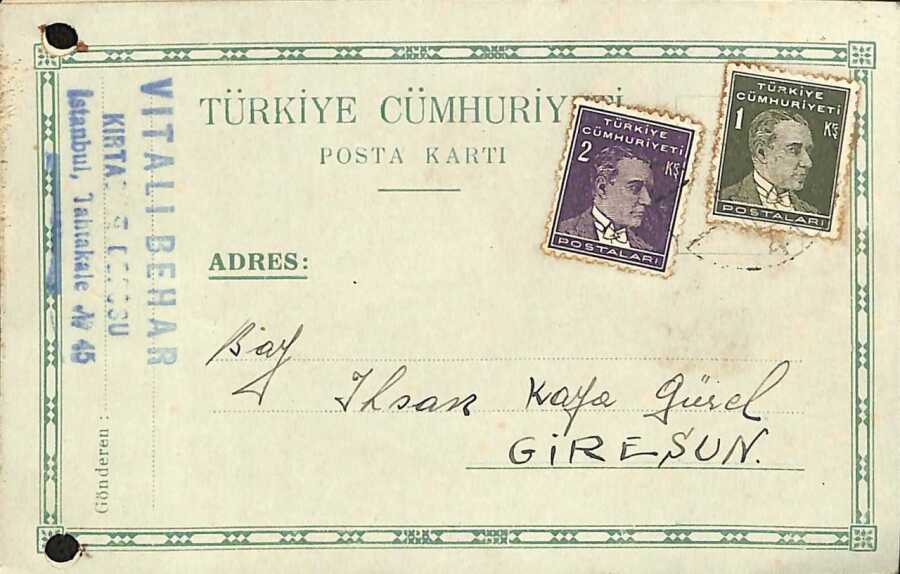 TÜRKİYE CÜMHURİY
POSTA KARTI
TÜRKİYE
CÜMHURİYETİ
2 KŞ
POSTALARI
TÜRKİYE
CÜMHURİYETİ
1 KŞ
POSTALARI
VITALI BEHAR
İstanbul, Tahtakale № 45
Gönderen :
ADRES:
Bay
Ihsan Kaya Gürel
GİRESUN.